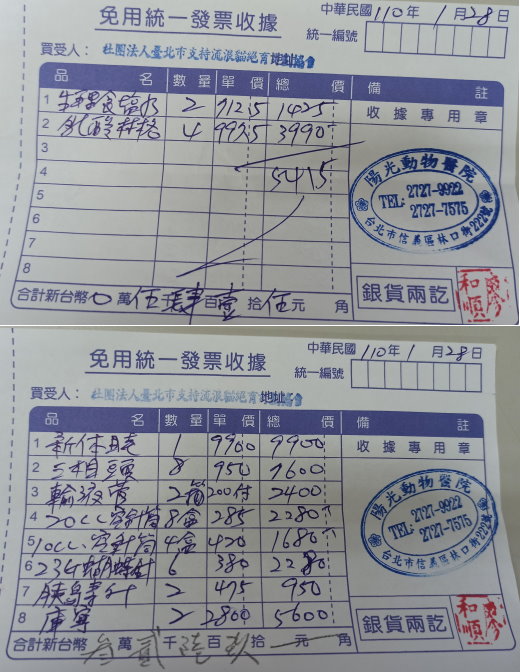 免用統一發票收據
中華民國 110年 1月28日
統一編號
買受人: 社團法人臺北市支持流浪貓絕育計劃協會 地址
品名 數量 單價 總價 備註
1 生理食鹽水 2 712.5 1425
收據專用章
2 乳酸林格 4 997.5 3990
3
4 5415
5
6
7
8
陽光動物醫院
TEL: 2727-9922
2727-7575
台北市信義區林口街222號
合計新台幣 0萬伍仟肆百壹拾伍元 角
銀貨兩訖
和順
免用統一發票收據
中華民國 110年 1月28日
統一編號
買受人: 社團法人臺北市支持流浪貓絕育 地址 協會
品名 數量 單價 總價 備註
1 1 9900 9900
收據專用章
2 8 950 7600
3 輸液管 2箱 200付 2400
4 20cc 空針筒 8盒 285 2280
5 10cc 空針筒 4盒 420 1680
6 23G 蝴蝶針 6 380 2280
7 胰島素針 2 475 950
8 2 2800 5600
陽光動物醫院
TEL: 2727-9922
2727-7575
台北市信義區林口街222號
合計新台幣 叁萬貳千 百 拾 元 角
銀貨兩訖
和順